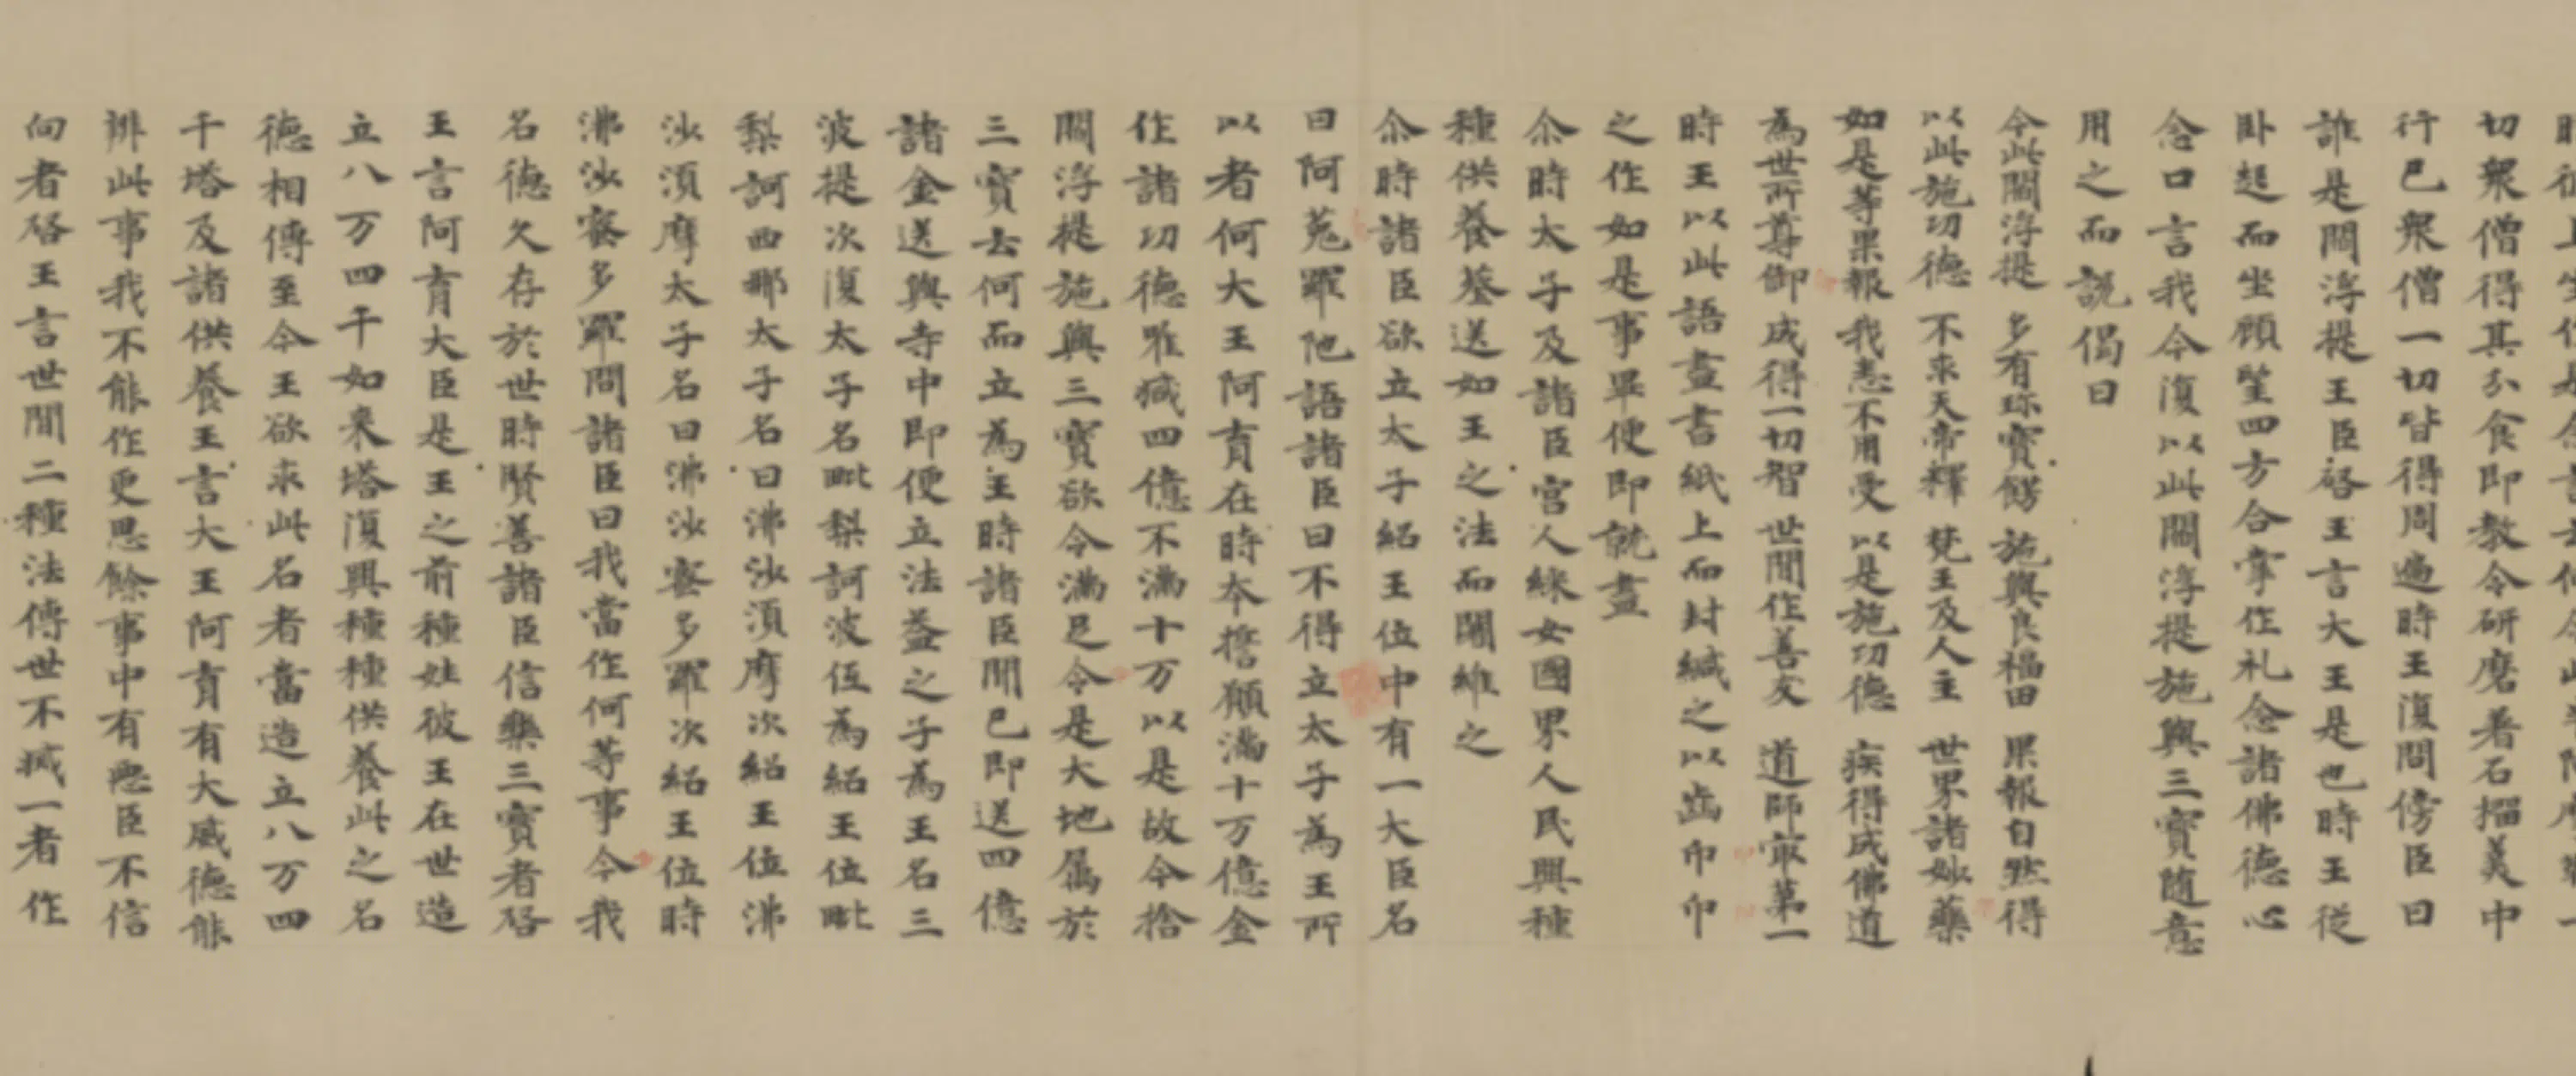 切衆僧得其分食即教令研磨著石榴羮中
行已衆僧一切皆得周遍時王復問傍臣曰
誰是閻浮提王臣啓王言大王是也時王從
卧起而坐顧望四方合掌作礼念諸佛德心
念口言我今復以此閻浮提施與三寶随意
用之而說偈曰
今此閻浮提 多有珎寶餝 施與良福田 果報自然得
以此施功德 不求天帝釋 梵王及人主 世界諸妙藥
如是等果報 我悉不用受 以是施功德 疾得成佛道
為世所尊御 成得一切智 世間作善友 道師㝡第一
時王以此語盡書紙上而封緘之以齒印印
之作如是事畢便即就盡
尒時太子及諸臣宮人婇女國界人民興種
種供養葬送如王之法而闍維之
尒時諸臣欲立太子紹王位中有一大臣名
曰阿㝹羅陁語諸臣曰不得立太子為王所
以者何大王阿育在時夲擔願滿十万億金
作諸功德唯減四億不滿十万以是故今捨
閻浮提施與三寶欲令滿足今是大地属於
三寶去何而立為王時諸臣聞已即送四億
諸金送與寺中即便立法益之子為王名三
波提次復太子名毗梨訶波低為紹王位毗
梨訶西那太子名曰沸沙湏摩次紹王位沸
沙湏摩太子名曰沸沙蜜多羅次紹王位時
沸沙蜜多羅問諸臣曰我當作何等事令我
名德久存於世時賢善諸臣信樂三寶者啓
王言阿育大臣是王之前種姓彼王在世造
立八万四千如来塔復興種種供養此之名
德相傳至今王欲求此名者當造立八万四
千塔及諸供養王言大王阿育有大威德能
辦此事我不能作更思餘事中有惡臣不信
向者啓王言世間二種法傳世不滅一者作